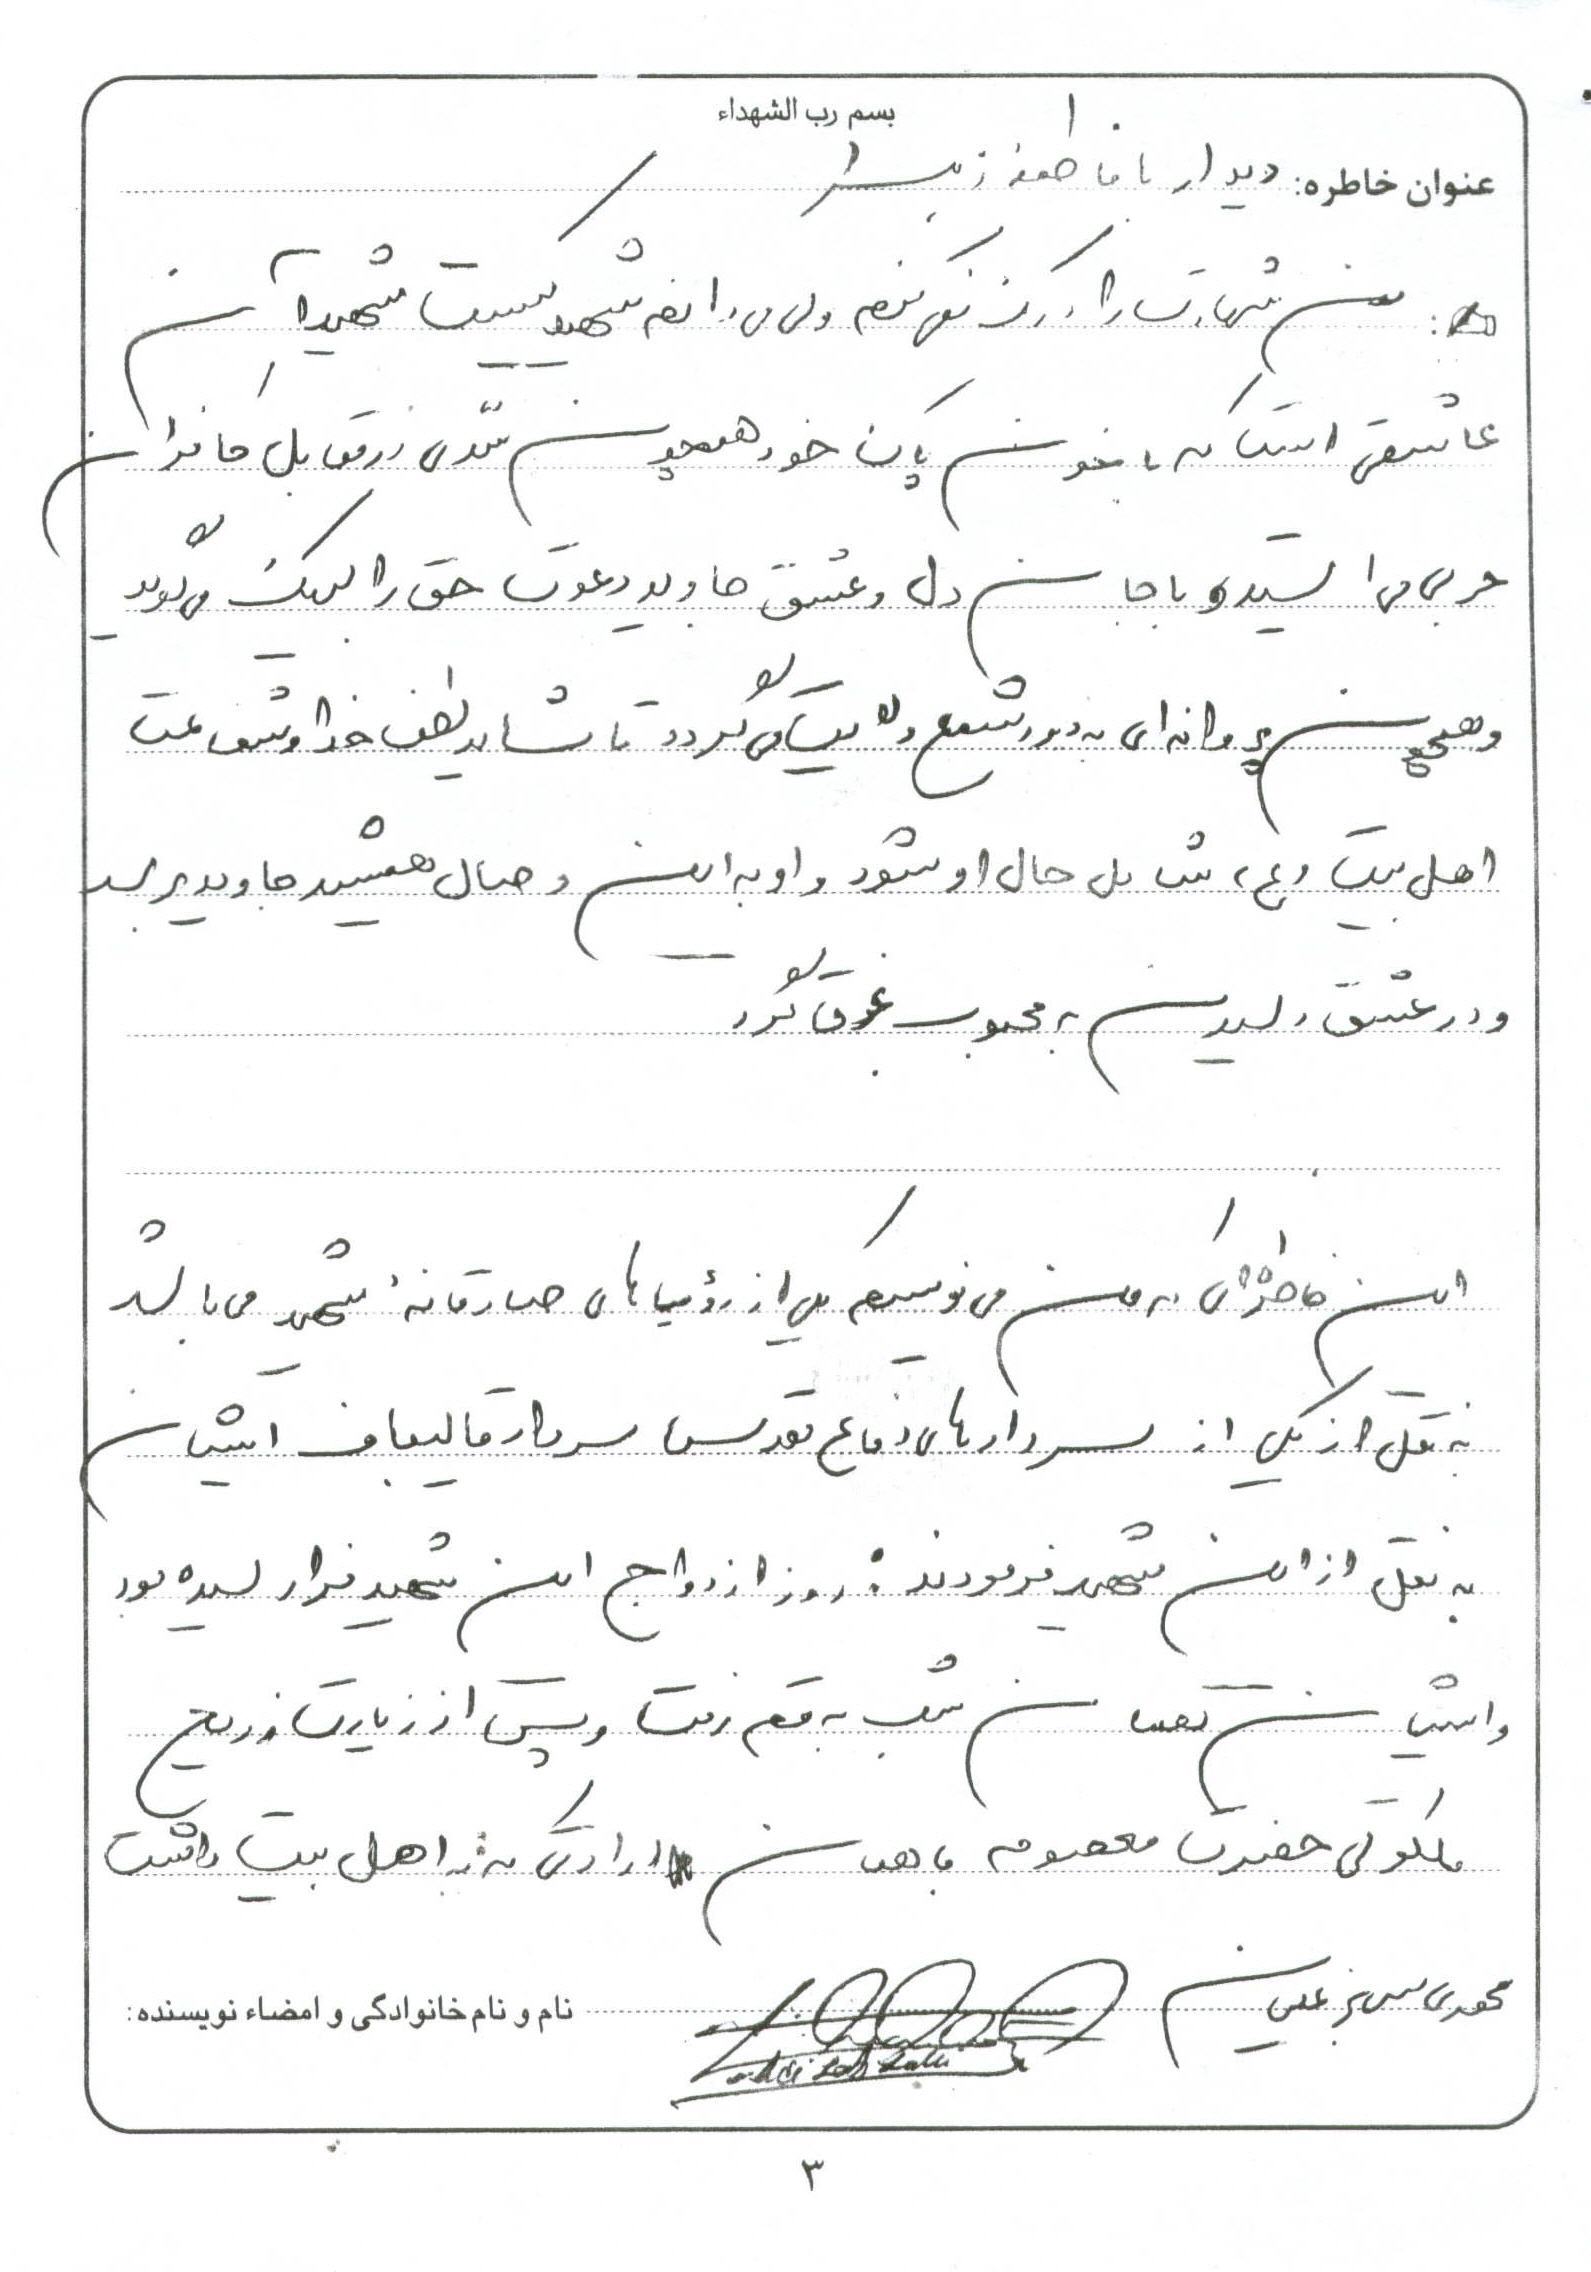 بسم رب الشهداء
عنوان خاطره: دیدار با فاطمه زهرا
من شهادت را درک نمی کنم ولی می دانم شهید کیست شهید آن
عاشقی است که با خون پاک خود همچون سدی در مقابل کافران
حربی می ایستد و با جان دل و عشق جاوید دعوت حق را لبیک می گوید
و همچون پروانه ای به دور شمع ولایت می گردد تا شاید لطف خدا و شفاعت
اهل بیت (ع) شامل حال او شود و او به این وصال همیشه جاوید برسد
و در عشق رسیدن به محبوب غرق گردد
این خاطره ای که من می نویسم یکی از رؤیاهای صادقانهٔ شهید می باشد
به نقل از یکی از سردارهای دفاع مقدس سردار قالیباف ایشان
به نقل از این شهید فرمودند: روز ازدواج این شهید فرا رسیده بود
و ایشان همان شب به قم رفت و پس از زیارت ضریح
ملکوتی حضرت معصومه با همان ارادتی که به اهل بیت داشت
نام و نام خانوادگی و امضاء نویسنده:
۳